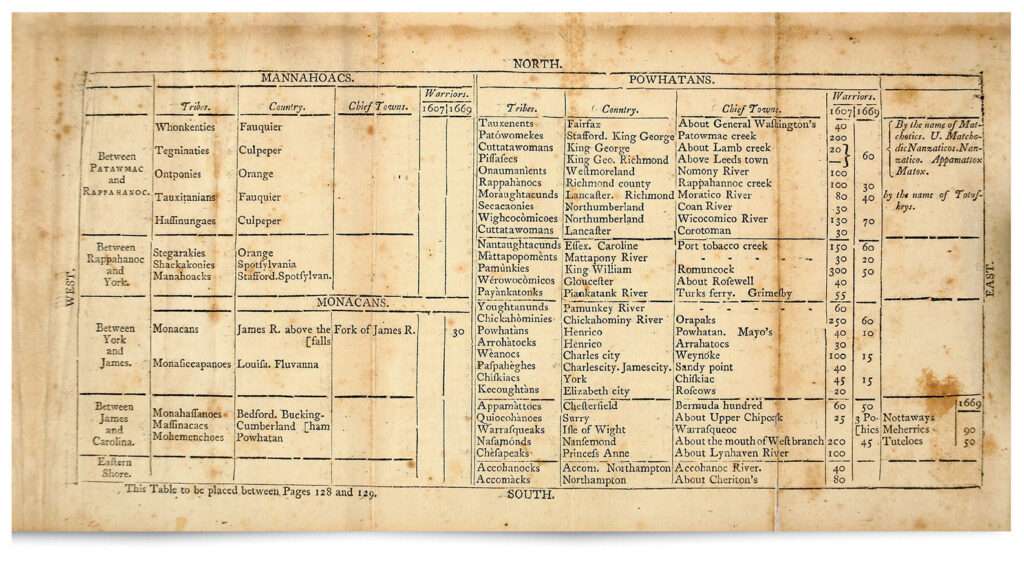 NORTH.
MANNAHOACS. POWHATANS.
Warriors. Warriors.
Tribes. Country. Chief Towns. 1607 1669 Tribes. Country. Chief Towns. 1607 1669
WEST.
Between
PATAWMAC
and
RAPPAHANOC.
Whonkenties Fauquier
Tegninaties Culpeper
Ontponies Orange
Tauxitanians Fauquier
Haſſinungaes Culpeper
Between
Rappahanoc
and
York.
Stegarakies Orange
Shackakonies Spotſylvania
Manahoacks Stafford.Spotſylvan.
MONACANS.
Between
York
and
James.
Monacans James R. above the Fork of James R. 30
[falls
Monaſiccapanoes Louiſa. Fluvanna
Between
James
and
Carolina.
Monahaſſanoes Bedford. Bucking-
Maſſinacacs Cumberland [ham
Mohemenchoes Powhatan
Eaſtern
Shore.
Tauxenents Fairfax About General Waſhington's 40
Patówomekes Stafford. King George Patowmac creek 200
Cuttatawomans King George About Lamb creek 20
Piſſaſecs King Geo. Richmond Above Leeds town — 60
Onaumanients Weſtmoreland Nomony River 100
Rappahànocs Richmond county Rappahannoc creek 100 30
Moràughtacunds Lancaſter. Richmond Moratico River 80 40
Secacaonies Northumberland Coan River 30
Wighcocòmicoes Northumberland Wicocomico River 130 70
Cuttatawomans Lancaſter Corotoman 30
By the name of Mat-
chotics. U. Matcho-
dic Nanzaticos. Nan-
zatico. Appamatox
Matox.
by the name of Totuſ-
keys.
Nantaughtacunds Eſſex. Caroline Port tobacco creek 150 60
Màttapomènts Mattapony River - - - - - 30 20
Pamùnkies King William Romuncock 300 50
Wèrowocòmicos Glouceſter About Roſewell 40
Payànkatonks Piankatank River Turks ferry. Grimeſby 55
Youghtanunds Pamunkey River - - - - - 60
Chickahòminies Chickahominy River Orapaks 250 60
Powhatàns Henrico Powhatan. Mayo's 40 10
Arrowhàtocs Henrico Arrahatocs 30
Wèanocs Charles city Weynoke 100 15
Paſpahèghes Charlescity. Jamescity. Sandy point 40
Chiſkiacs York Chiſkiac 45 15
Kecoughtáns Elizabeth city Roſcows 20
Appamàttocs Cheſterfield Bermuda hundred 60 50
Quiocohànoes Surry About Upper Chipoak 25 Po-
Wàrraſqeaks Iſle of Wight Warraſqueoc [chics
Naſamònds Nanſemond About the mouth of Weſt branch 200 45
Chèſapeaks Princeſs Anne About Lynhaven River 100
1669
Nottoways
Meherrics 90
Tuteloes 50
Accohanocks Accom. Northampton Accohanoc River. 40
Accomàcks Northampton About Cheriton's 80
EAST.
This Table to be placed between Pages 128 and 129.
SOUTH.